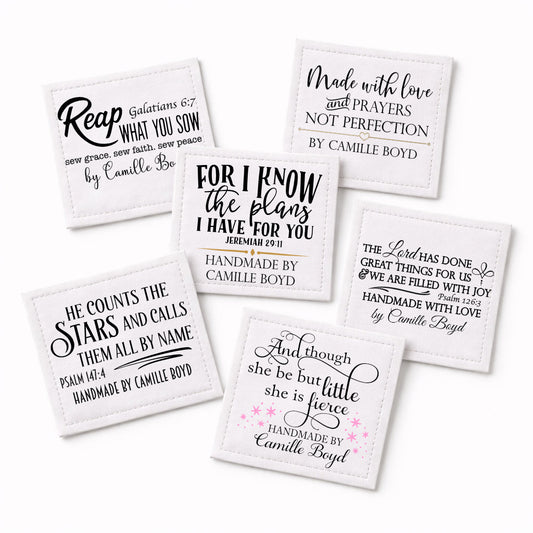 Reap Galatians 6:7
WHAT YOU SOW
sew grace, sew faith, sew peace
by Camille Bo
Made with love
and PRAYERS
NOT PERFECTION
BY CAMILLE BOYD
FOR I KNOW
the plans
I HAVE FOR YOU
JEREMIAH 29:11
HANDMADE BY
CAMILLE BOYD
THE Lord HAS DONE
GREAT THINGS FOR US
& WE ARE FILLED WITH JOY
Psalm 126:3
HANDMADE WITH LOVE
by Camille Boyd
HE COUNTS THE
STARS AND CALLS
THEM ALL BY NAME
PSALM 147:4
HANDMADE BY CAMILLE BOYD
And though
she be but little
she is fierce
HANDMADE BY
Camille Boyd